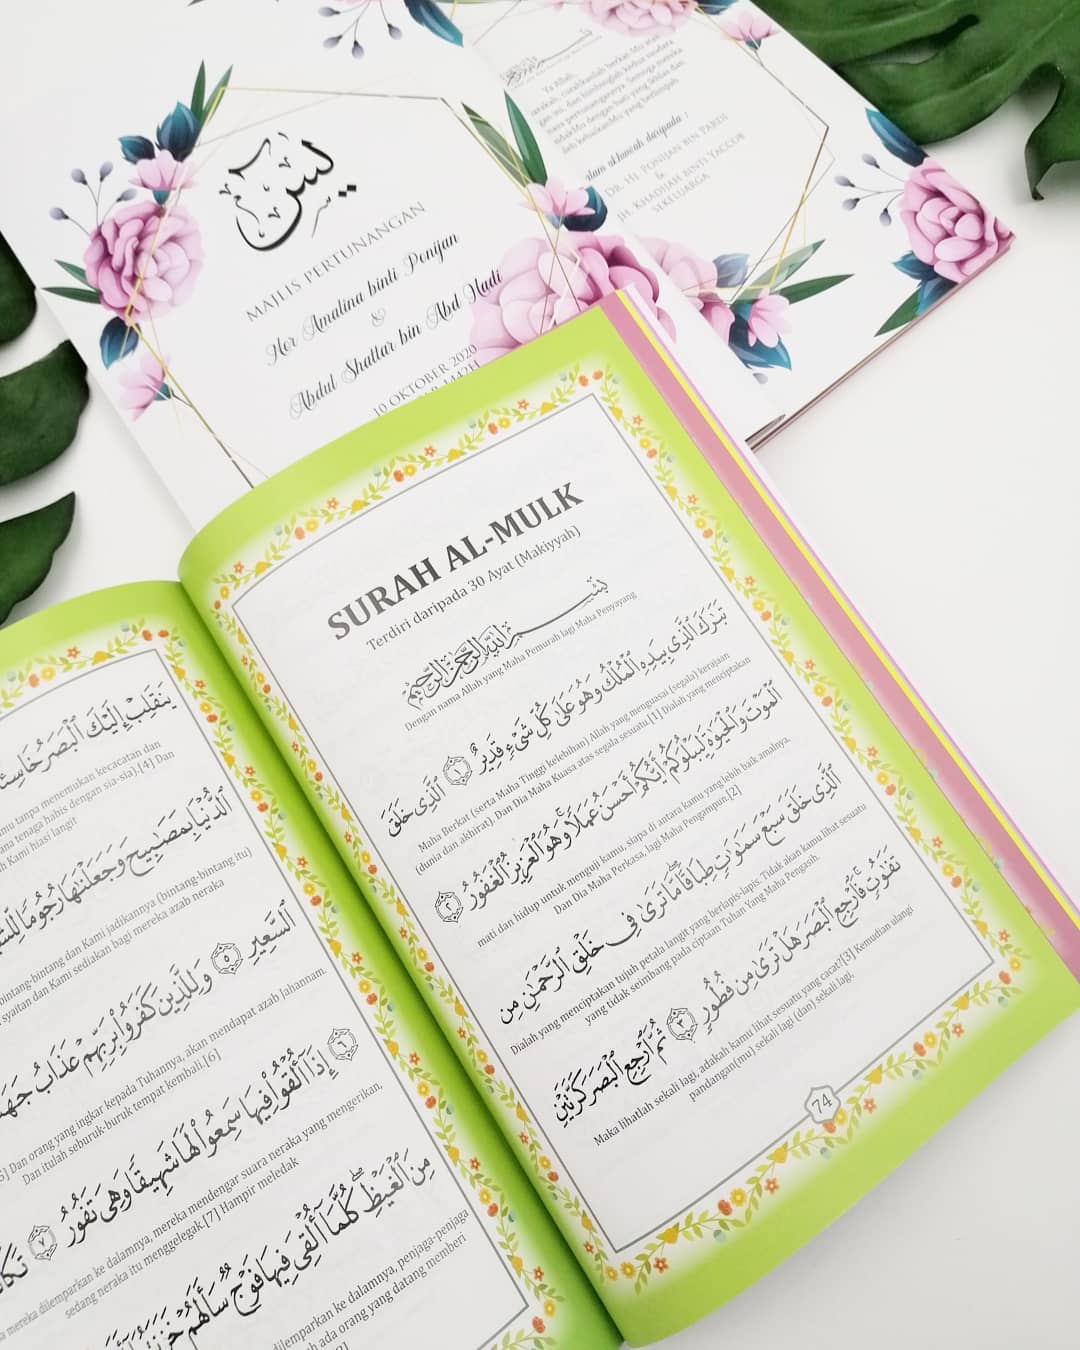 يس
MAJLIS PERTUNANGAN
Her Amalina binti Ponijan
&
Abdul Shattar bin Abd Hadi
10 OKTOBER 2020
1442H
Ya Allah,
berkan Mu atas
dan
alam ukhuwah daripada :
DR. HJ. PONIJAN BIN PARDI
&
JH. KHADIJAH BINTI YACCOB
SEKELUARGA
SURAH AL-MULK
Terdiri daripada 30 Ayat (Makiyyah)
بِسْمِ اللَّهِ الرَّحْمَٰنِ الرَّحِيمِ
Dengan nama Allah yang Maha Pemurah lagi Maha Penyayang
تَبَٰرَكَ ٱلَّذِى بِيَدِهِ ٱلْمُلْكُ وَهُوَ عَلَىٰ كُلِّ شَىْءٍ قَدِيرٌ ١ ٱلَّذِى خَلَقَ
Maha Berkat (serta Maha Tinggi kelebihan) Allah yang menguasai (segala) kerajaan
(dunia dan akhirat). Dan Dia Maha Kuasa atas segala sesuatu.[1] Dialah yang menciptakan
ٱلْمَوْتَ وَٱلْحَيَوٰةَ لِيَبْلُوَكُمْ أَيُّكُمْ أَحْسَنُ عَمَلًا وَهُوَ ٱلْعَزِيزُ ٱلْغَفُورُ ٢
mati dan hidup untuk menguji kamu, siapa di antara kamu yang lebih baik amalnya.
Dan Dia Maha Perkasa, lagi Maha Pengampun.[2]
ٱلَّذِى خَلَقَ سَبْعَ سَمَٰوَٰتٍ طِبَاقًا مَّا تَرَىٰ فِى خَلْقِ ٱلرَّحْمَٰنِ مِن
Dialah yang menciptakan tujuh petala langit yang berlapis-lapis. Tidak akan kamu lihat sesuatu
yang tidak seimbang pada ciptaan Tuhan Yang Maha Pengasih.
تَفَٰوُتٍ فَٱرْجِعِ ٱلْبَصَرَ هَلْ تَرَىٰ مِن فُطُورٍ ٣ ثُمَّ ٱرْجِعِ ٱلْبَصَرَ كَرَّتَيْنِ
Maka lihatlah sekali lagi, adakah kamu lihat sesuatu yang cacat?[3] Kemudian ulangi
pandangan(mu) sekali lagi (dan) sekali lagi,
74
يَنقَلِبْ إِلَيْكَ ٱلْبَصَرُ خَاسِئًا
mu tanpa menemukan kecacatan dan
ana tenaga habis dengan sia-sia).[4] Dan
h Kami hiasi langit
ٱلدُّنْيَا بِمَصَٰبِيحَ وَجَعَلْنَٰهَا رُجُومًا
bintang-bintang dan Kami jadikannya (bintang-bintang itu)
syaitan dan Kami sediakan bagi mereka azab neraka
ٱلسَّعِيرِ ٥ وَلِلَّذِينَ كَفَرُوا۟ بِرَبِّهِمْ عَذَابُ
5] Dan orang yang ingkar kepada Tuhannya, akan mendapat azab Jahannam.
Dan itulah seburuk-buruk tempat kembali.[6]
٦ إِذَآ أُلْقُوا۟ فِيهَا سَمِعُوا۟ لَهَا شَهِيقًا وَهِىَ تَفُورُ ٧
mereka dilemparkan ke dalamnya, mereka mendengar suara neraka yang mengerikan,
sedang neraka itu menggelegak.[7] Hampir meledak
مِنَ ٱلْغَيْظِ كُلَّمَآ أُلْقِىَ فِيهَا فَوْجٌ سَأَلَهُمْ
dilemparkan ke dalamnya, penjaga-penjaga
ah ada orang yang datang memberi